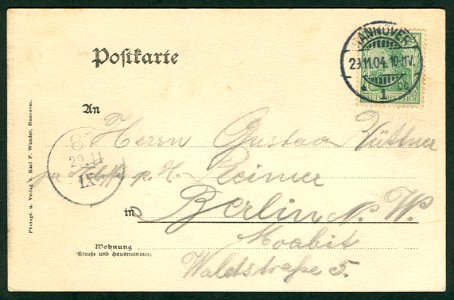 Postkarte
HANNOVER
23.11.04. 10-11V.
1
An
Herrn Gustav Hüttner
p. H. Reimer
in Berlin N. W.
Moabit
Waldstraße 5.
Wohnung
(Straße und Hausnummer)
Photogr. u. Verlag v. Karl F. Wunder, Hannover.